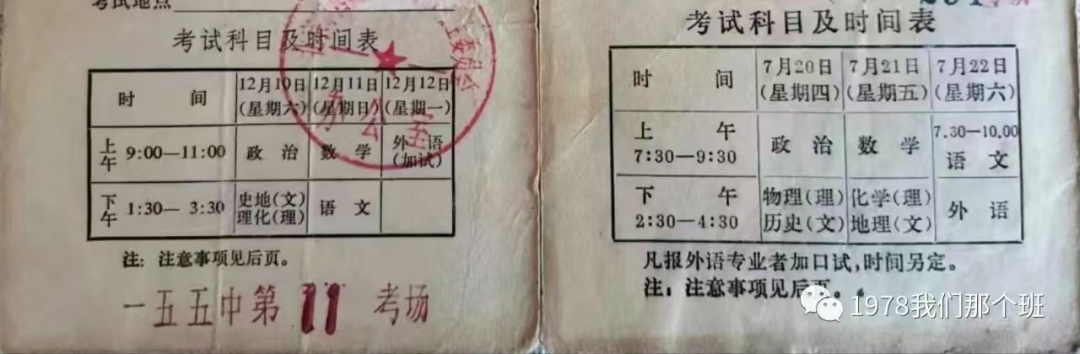 考试地点
考试科目及时间表
时 间
12月10日(星期六)
12月11日(星期日)
12月12日(星期一)
上午 9:00—11:00
政 治
数 学
外 语(加试)
下午 1:30— 3:30
史地(文)
理化(理)
语 文
注：注意事项见后页。
一五五中第11考场
办公室
考试科目及时间表
时 间
7月20日(星期四)
7月21日(星期五)
7月22日(星期六)
上 午
7:30—9:30
政 治
数 学
7.30-10.00
语 文
下 午
2:30—4:30
物理(理)
历史(文)
化学(理)
地理(文)
外 语
凡报外语专业者加口试,时间另定。
注：注意事项见后页。
1978我们那个班